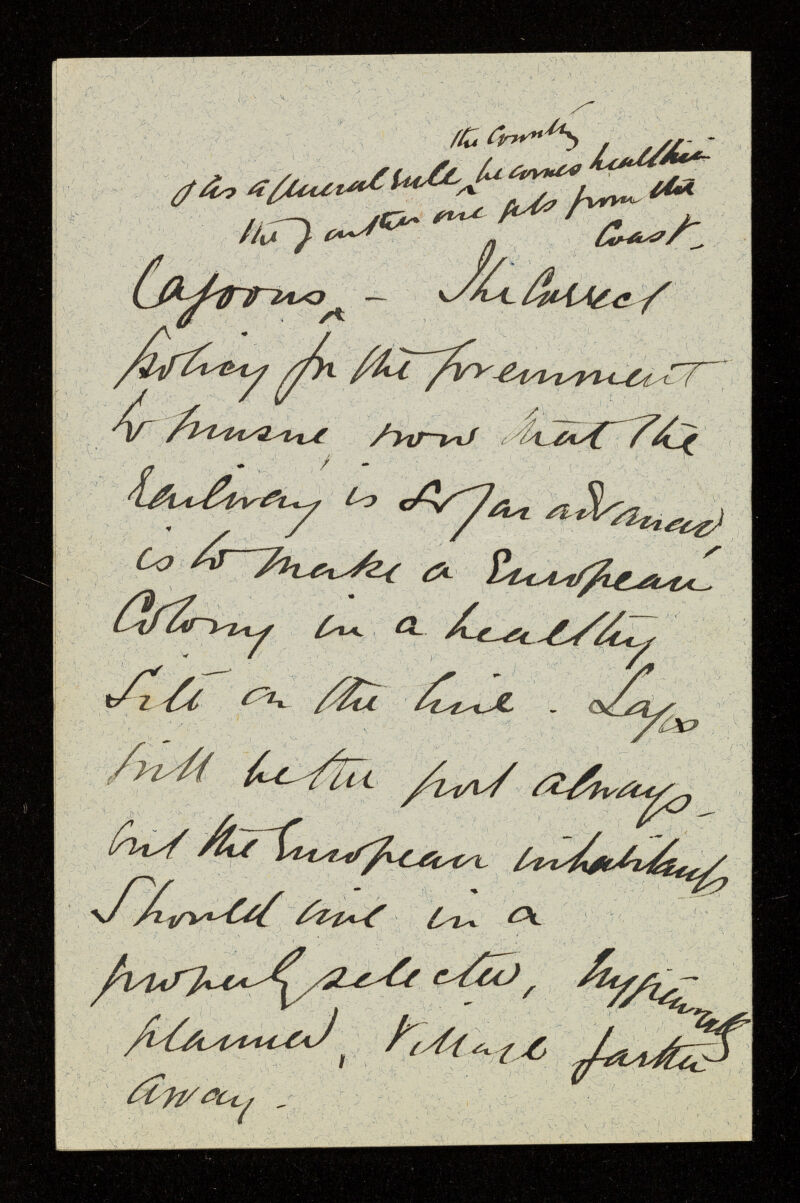 the country
& as a general rule ‸ becomes healthier
the further one gets from the
Coast.
lagoons ‸ - The correct
policy for the Government
to pursue, now that the
Railway is so far advanced,
is to make a European
Colony in a healthy
Site on the line. Lagos
will be the port always -
but the European inhabitants
Should live in a
properly selected, hygienically
planned, village farther
away -